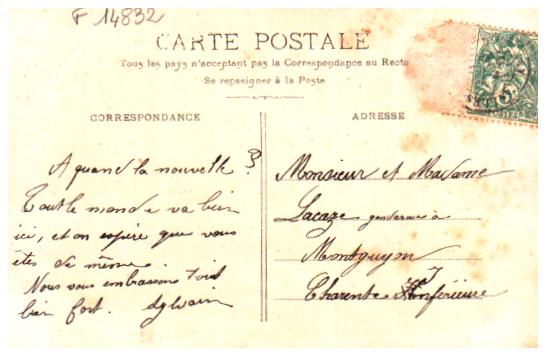 F 14832
CARTE POSTALE
Tous les pays n'acceptant pas la Correspondance au Recto
Se renseigner à la Poste
CORRESPONDANCE
ADRESSE
A quand la nouvelle ?
Tout le monde va bien
ici, et on espère que vous
êtes de même.
Nous vous embrassons tous
bien fort. Sylvain
Monsieur et Madame
Lacaze gendarme à
Montguyon
Charente Inférieure
5
POSTES